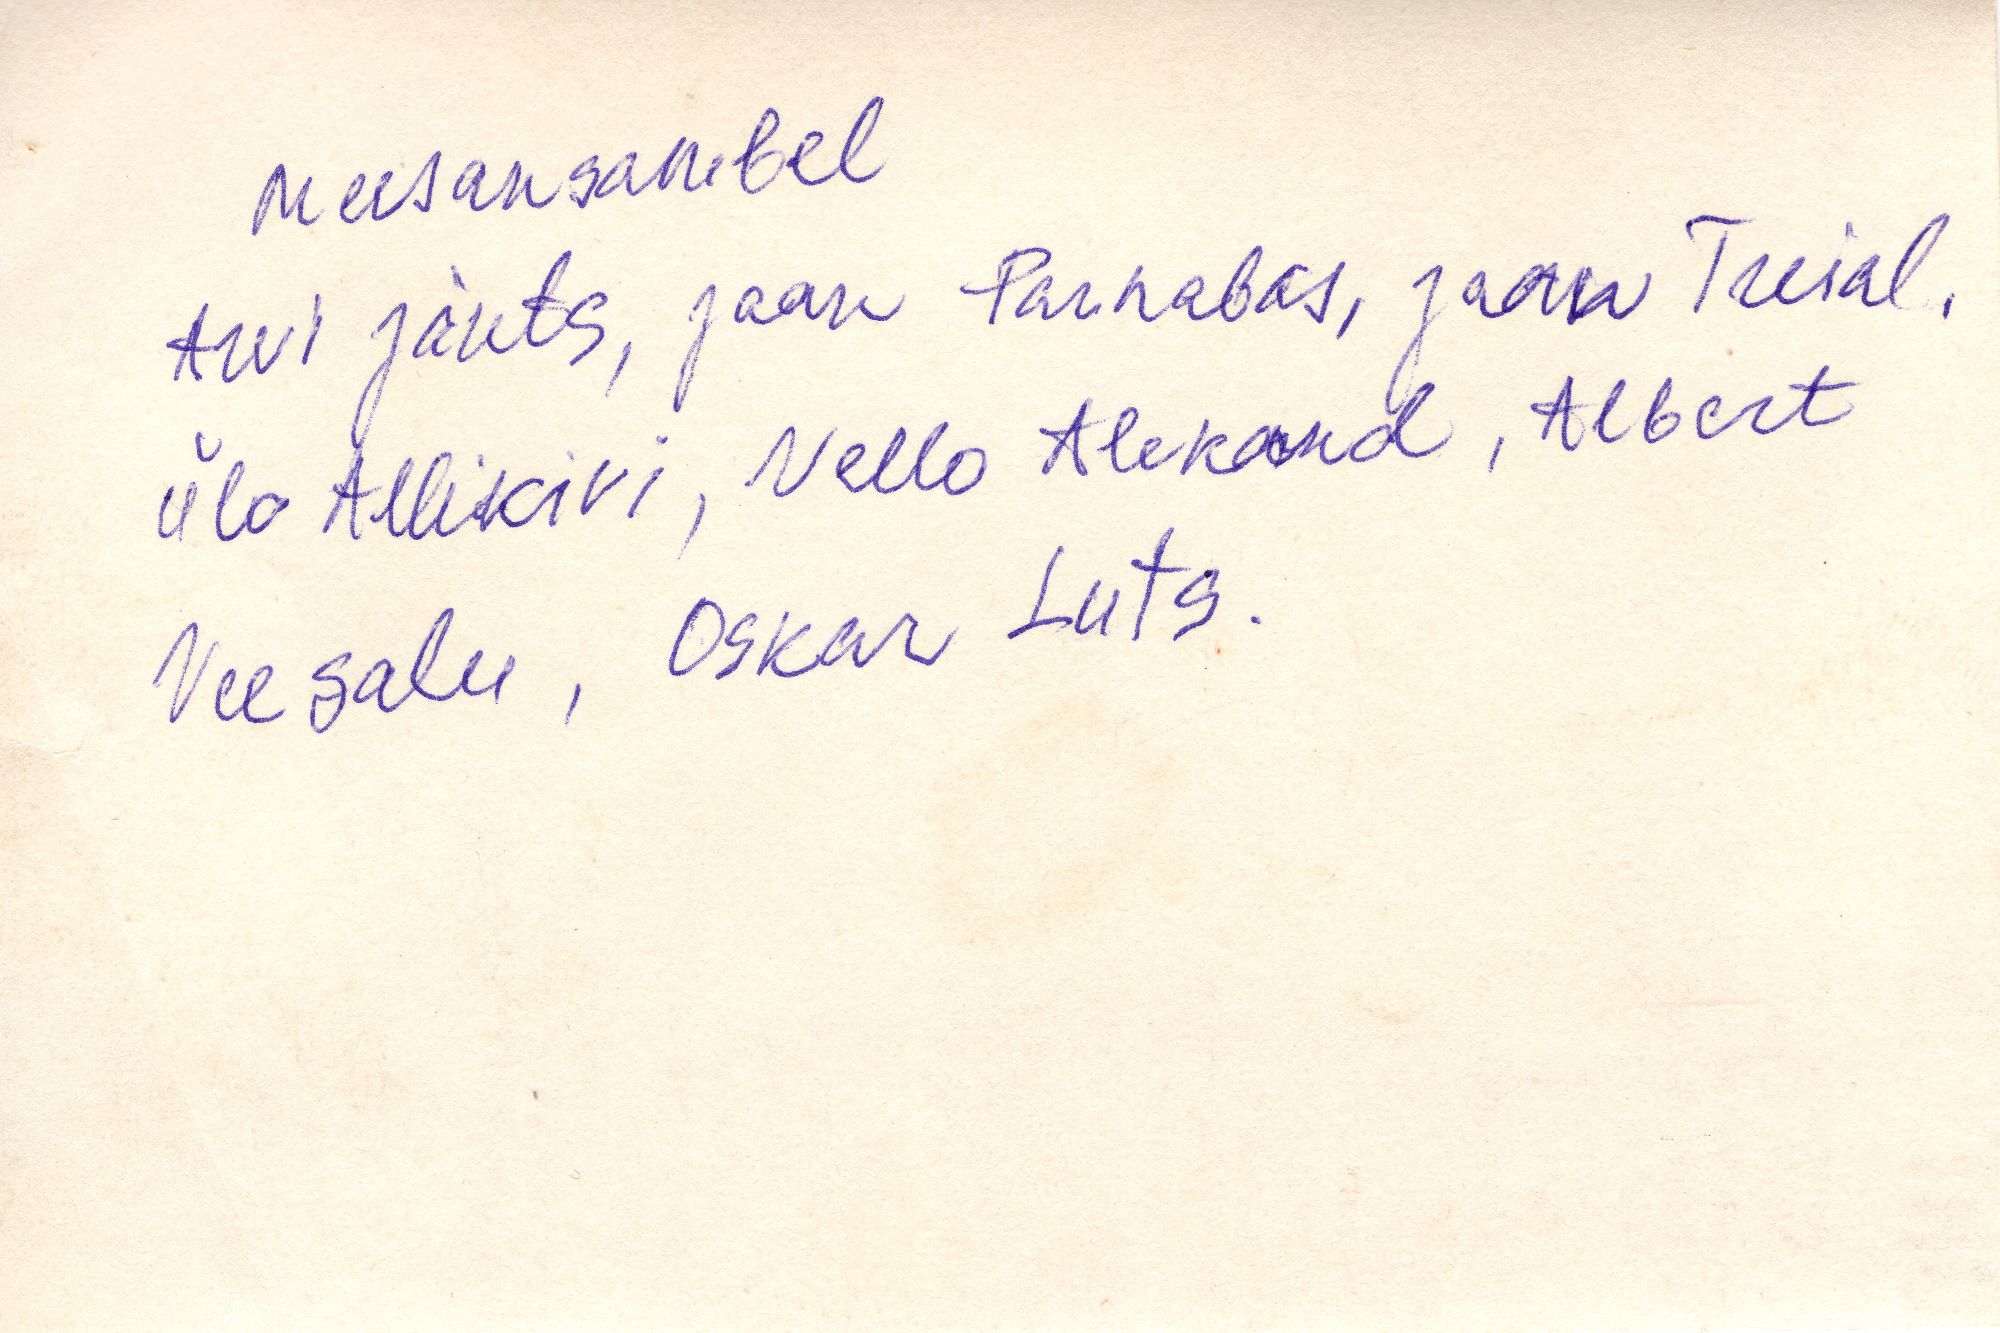 Meesansambel
Arvi Jänts, Jaan Parnabas, Jaan Treial,
Ülo Allikivi, Vello Alekand, Albert
Veesalu, Oskar Luts.